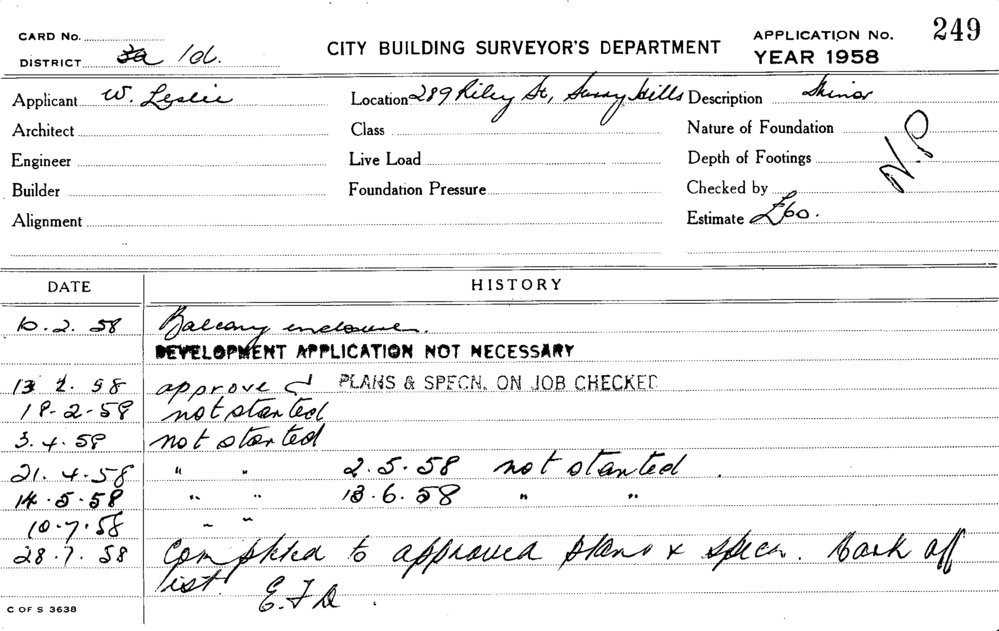 CARD No.
DISTRICT 1d.
CITY BUILDING SURVEYOR'S DEPARTMENT
APPLICATION No. 249
YEAR 1958
Applicant W. Leslie
Location 289 Riley St, Surry Hills
Description Minor
Architect
Class
Nature of Foundation
N.P
Engineer
Live Load
Depth of Footings
Builder
Foundation Pressure
Checked by
Alignment
Estimate £60.
DATE HISTORY
10.2.58 Balcony enclosure.
DEVELOPMENT APPLICATION NOT NECESSARY
13 2. 58 approved PLANS & SPECN. ON JOB CHECKED
18-2-58 not started
3.4.58 not started
21.4.58 " " 2.5.58 not started.
14.5.58 " " 13.6.58 " "
10.7.58 " "
28.7.58 Completed to approved plans & specn. Mark off
list. E.F.D.
C OF S 3638